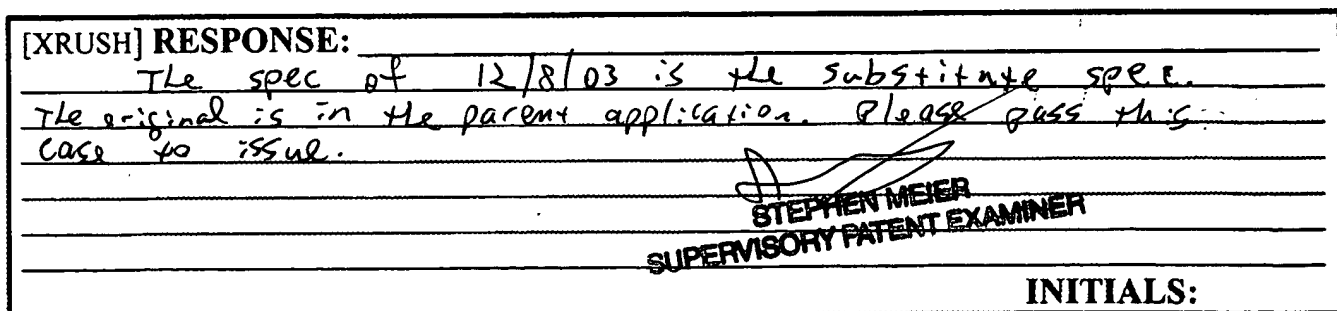 [XRUSH] RESPONSE:
The spec of 12/8/03 is the substitute spec.
The original is in the parent application. Please pass this
case to issue.
STEPHEN MEIER
SUPERVISORY PATENT EXAMINER
INITIALS: